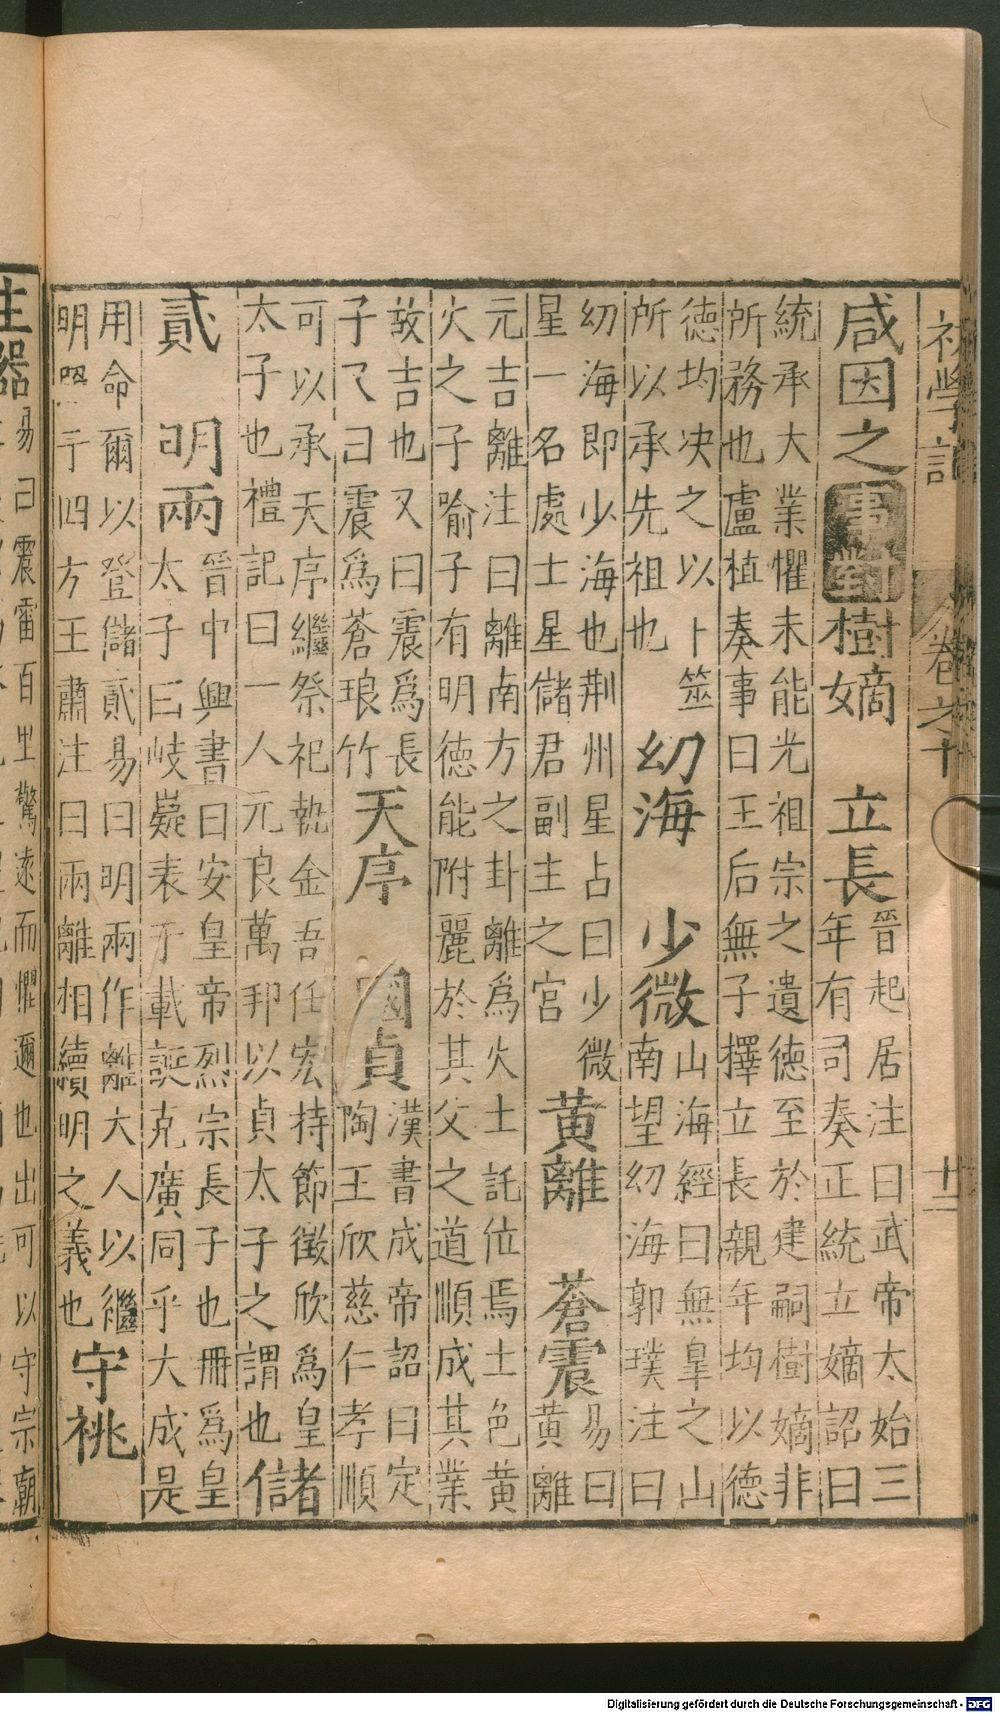 初學記
卷之十
十二
咸因之 事對 樹嫡 立長 晉起居注曰武帝太始三
年有司奏正統立嫡詔曰
統承大業懼未能光祖宗之遺德至於建嗣樹嫡非
所務也盧植奏事曰王后無子擇立長親年均以德
德均決之以卜筮
所以承先祖也 幼海 少微 山海經曰無皐之山
南望幼海郭璞注曰
幼海即少海也荆州星占曰少微
星一名處士星儲君副主之宮 黃離 蒼震 易曰
黃離
元吉離注曰離南方之卦離爲火土託位焉土色黃
火之子喻子有明德能附麗於其父之道順成其業
故吉也又曰震爲長
子又曰震爲蒼琅竹 天序 國貞 漢書成帝詔曰定
陶王欣慈仁孝順
可以承天序繼祭祀執金吾任宏持節徵欣爲皇
太子也禮記曰一人元良萬邦以貞太子之謂也 儲
貳 明兩 晉中興書曰安皇帝烈宗長子也冊爲皇
太子曰岐嶷表于載誕克廣同乎大成是
用命爾以登儲貳易曰明兩作離大人以繼
明照于四方王肅注曰兩離相續明之義也 守祧
主器 易曰震雷百里驚遠而懼邇也出可以守宗廟
Digitalisierung gefördert durch die Deutsche Forschungsgemeinschaft - DFG